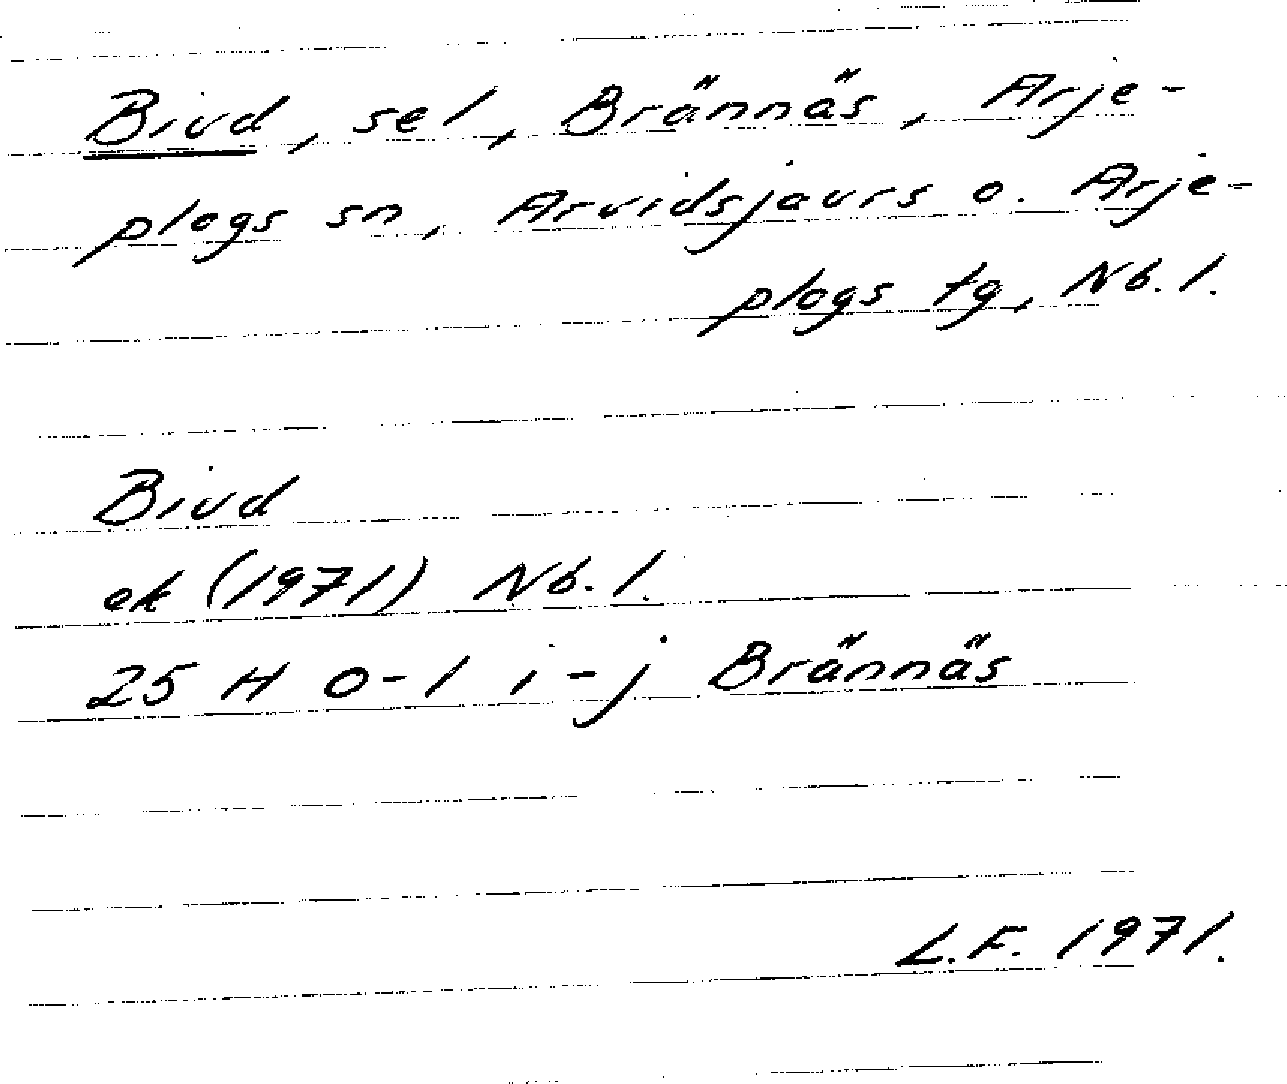 Bivd, sel, Brännäs, Arje-
plogs sn, Arvidsjaurs o. Arje-
plogs tg, Nb. l.
Bivd
ek (1971) Nb. l.
25 H 0-1 i-j Brännäs
L.F. 1971.